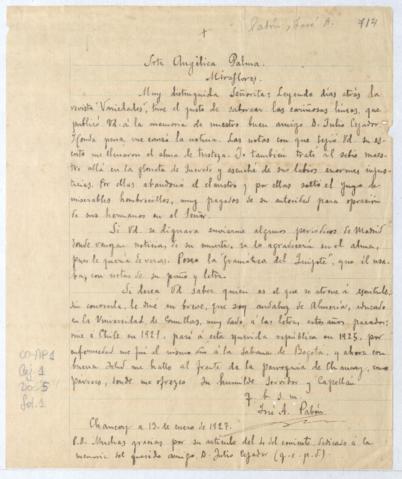 Pabón, José A.
714
+
Srta Angélica Palma.
Miraflores.
Muy distinguida Señorita: Leyendo días atrás la
revista "Variedades", tuve el gusto de saborear las cariñosas líneas, que
publicó Vd. a la memoria de nuestro buen amigo D. Julio Cejador.
Honda pena me causó la noticia. Las notas con que Vd. su
escrito me llenaron el alma de tristeza. Yo también traté al sabio maes-
tro allá en la glorieta de Quevedo y escuché de sus labios enormes injus-
ticias. Por ellas abandonó el claustro y por ellas saltó el yugo de
miserables hombrecillos, muy pagados de su autoridad para opresión
de sus hermanos en el Señor.
Si Vd. se dignara enviarme algunos periódicos de Madrid
donde vengan noticias de su muerte, se lo agradecería en el alma,
pues le quería de veras. Poseo la "Gramática del Quijote", que él usa-
ba, con notas de su puño y letra.
Si desea Vd. saber quién es el que se atreve a escribirle
sin conocerla, le diré en breve, que soy andaluz de Almería, educado
en la Universidad de Comillas, muy dado a las letras estos años pasados;
vine a Chile en 1921, pasé a esta querida república en 1925, por
enfermedad me fui el mismo año a la Sabana de Bogotá, y ahora con
buena salud me hallo al frente de la parroquia de Chancay, como
párroco, donde me ofrezco su humilde servidor y Capellán
q. b. s. m
José A. Pabón
Chancay a 13 de enero de 1927.
P.D. Muchas gracias por su artículo del 4 del corriente, dedicado a la
memoria del querido amigo D. Julio Cejador (q. e. p. d).